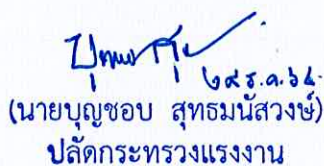 ๒๙ ธ.ค. ๖๔
(นายบุญชอบ สุทธมนัสวงษ์)
ปลัดกระทรวงแรงงาน